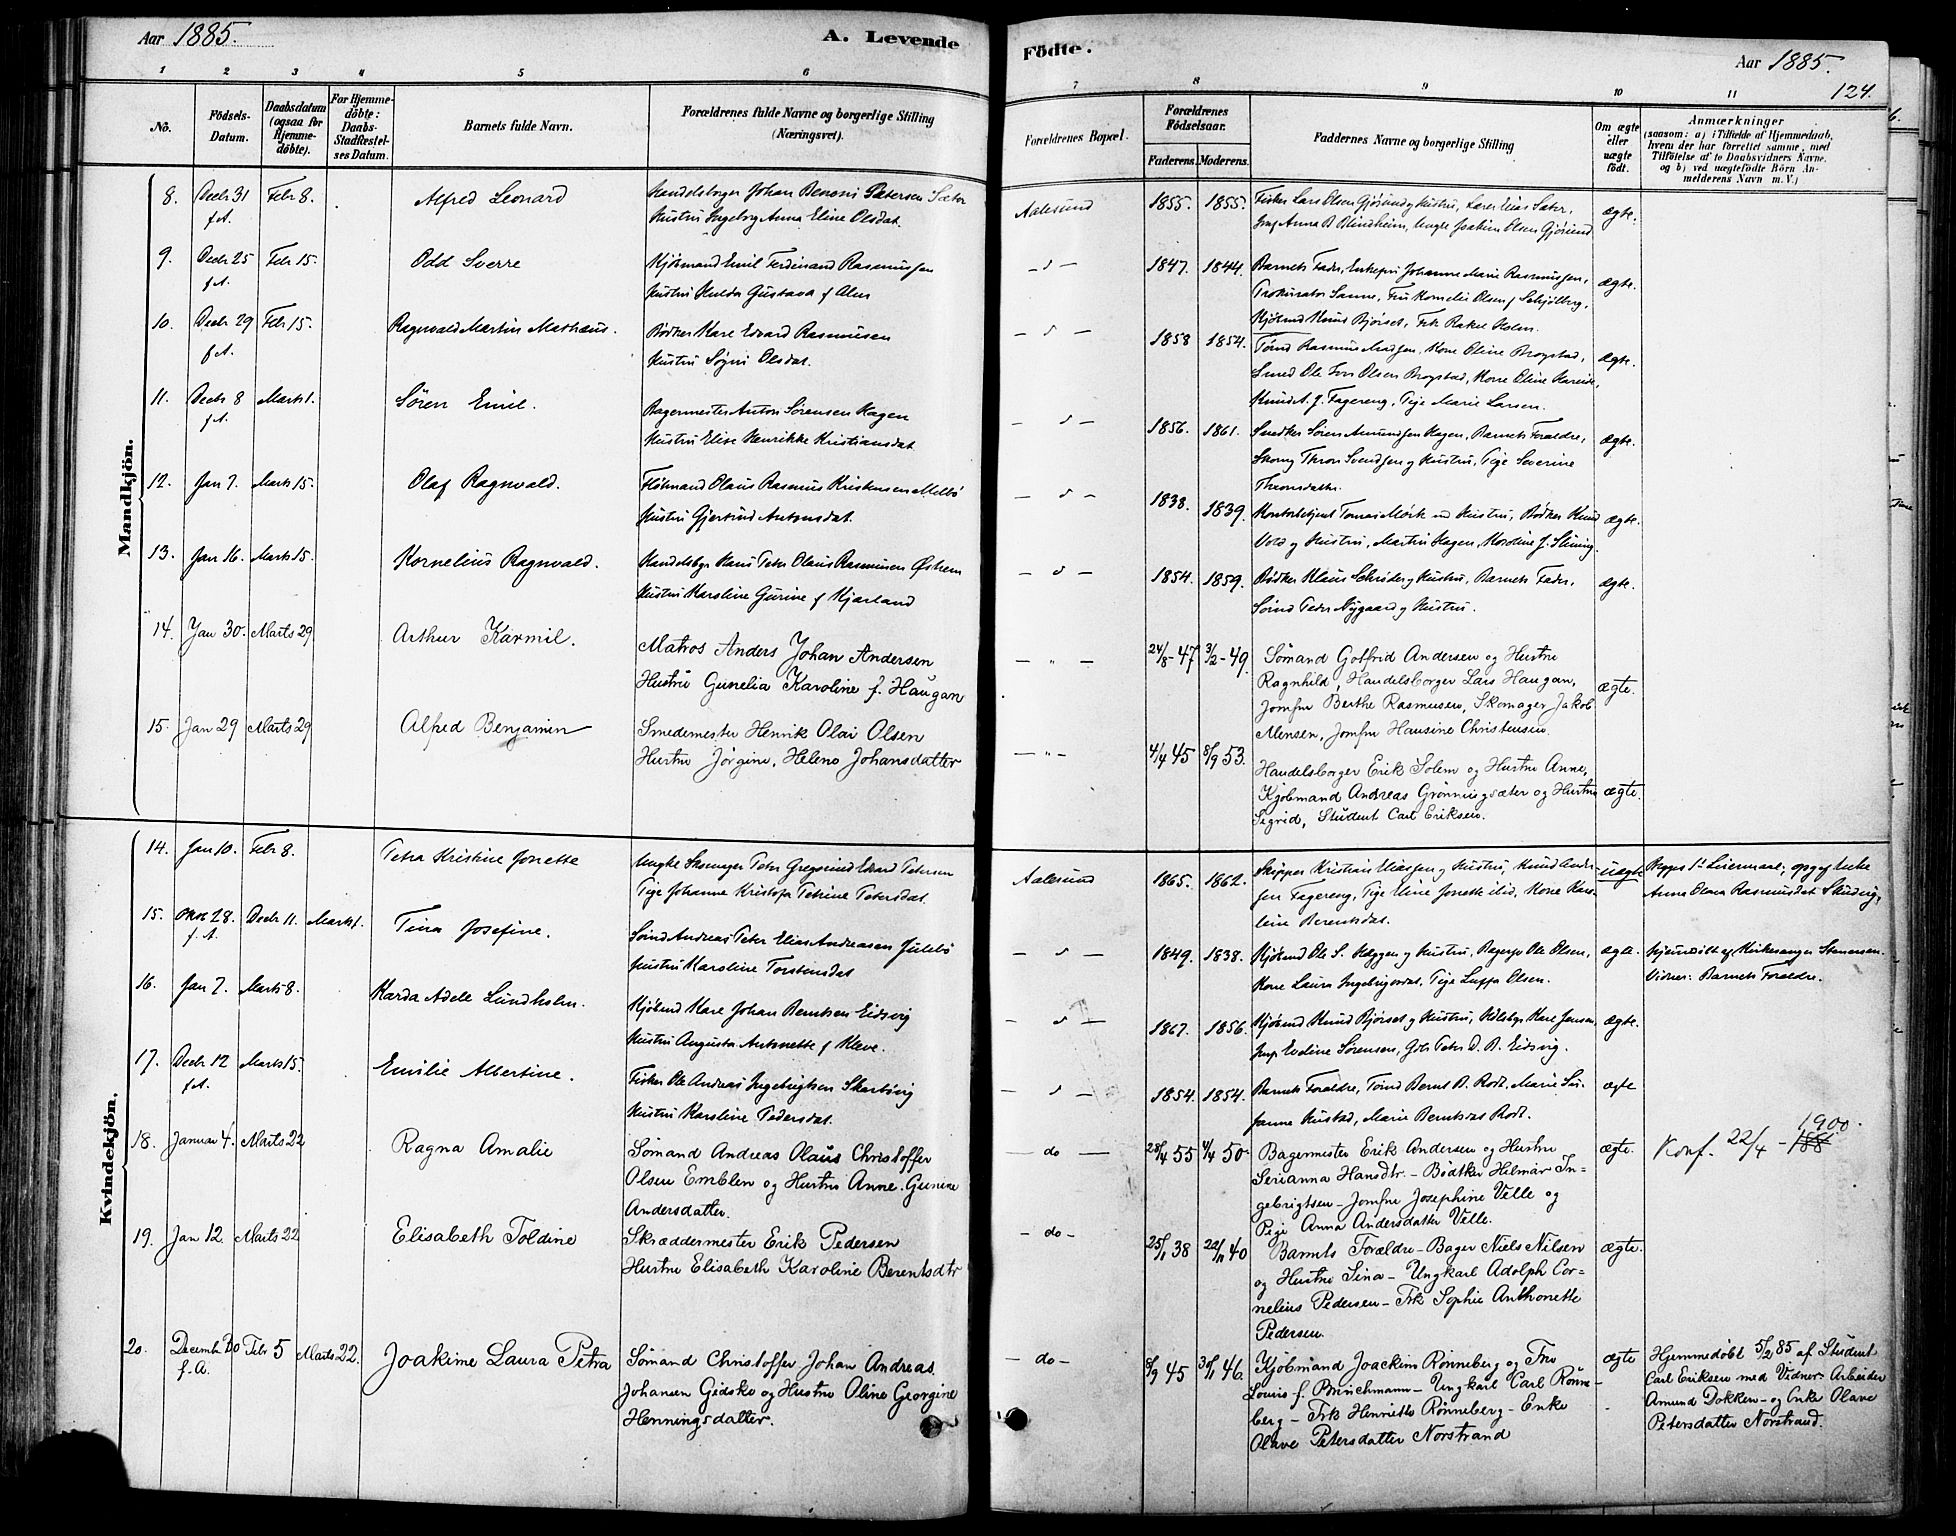 Aar 1885.
A. Levende
Födte.
Aar 1885.
124.
1 2 3 4 5 6 7 8 9 10 11
No.
Födsels-Datum.
Daabsdatum (ogsaa for Hjemme-döbte).
For Hjemme-döbte: Daabs-Stadfestel-ses Datum.
Barnets fulde Navn.
Forældrenes fulde Navne og borgerlige Stilling (Næringsvei).
Forældrenes Bopæl.
Forældrenes Födselsaar.
Faderens. Moderens.
Faddernes Navne og borgerlige Stilling
Om ægte eller uægte födt.
Anmærkninger
(saasom: a) i Tilfælde af Hjemmedaab, hvem der har forrettet samme, med Tilföielse af to Daabsvidners Navne. og b) ved uægtefödte Börn An-melderens Navn m. V.)
Mandkjön.
8. Decbr 31 f.A. Febr 8. Alfred Leonard
Handelsborger Johan Benoni Petersen Sæter
Hustru Ingeborg Anna Eline Olsdat.
Aalesund 1855. 1855.
Fisker Lars Olsen Gjøsund og Hustru, Lærer Elias Sæter,
Jomf Anna B Blindheim, Ungk Joakim Olsen Gjøsund
ægte.
9. Decbr 25 f.A. Febr 15. Odd Sverre
Kjøbmand Emil Ferdinand Rasmussen
Hustru Hulda Gustava f Alm
- d - 1847. 1844.
Barnets Fader, Enkefru Johanne Marie Rasmussen,
Prokurator Sanne, Fru Kornelie Olsen f Schjølberg,
Kjøbmd Knud Bjørset, Frk Rakel Holm.
ægte.
10. Decbr 29 f.A. Febr 15. Ragnvald Martin Mathæus.
Bødker Karl Edvard Rasmussen
Hustru Søgni Olsdat.
- d - 1858 1854.
Tømd Rasmus Madsen, Kone Oline Brogstad,
Smed Ole Olsen Brogstad, Kone Oline Hareide,
Knud A. J. Fagereng, Pige Marie Larsen.
ægte.
11. Decbr 8 f.A. Marts 1. Søren Emil.
Bagermester Anton Sørensen Hagen
Hustru Elise Henrikke Kristiansdat
- d - 1856. 1861.
Snedker Søren Amundsen Hagen, Barnets Forældre,
Skomg Thron Svendsen og Hustru, Pige Severine
Thronsdatter.
ægte.
12. Jan 7. Marts 15. Olaf Ragnvald.
Fløtmand Olaus Rasmus Kristensen Melbø
Hustru Gjertrud Antonsdat.
- d - 1838. 1839.
Kontorbetjent Tomas Mørk m Hustru, Bødker Knud
Vold og Hustru, Martin Hagen, Nordine J. Slining.
ægte.
13. Jan 16. Marts 15. Kornelius Ragnvald.
Handelsbgr Hans Peter Olaus Rasmussen Østrem
Hustru Karoline Gurine f Hjørland
- d - 1854. 1859.
Bødker Klaus Schrøder og Hustru, Barnets Fader,
Sømd Peder Nygaard og Hustru.
ægte.
14. Jan 30. Marts 29 Arthur Karmil.
Matros Anders Johan Andersen
Hustru Gunelia Karoline f. Haugan
- " - 24/8-47 3/2-49.
Sømand Gotfrid Andersen og Hustru
Ragnhild, Handelsborger Lars Haugan,
Jomfru Berthe Rasmussen, Skomager Jakob
Monsen, Jomfru Hansine Christensen.
ægte.
15. Jan 29 Marts 29 Alfred Benjamin
Smedemester Henrik Olai Olsen
Hustru Jørgine, Helene Johansdatter
- " - 4/4 45 8/9 53.
Handelsborger Erik Solem og Hustru Anne,
Kjøbmand Andreas Grønningsæter og Hustru
Sigrid, Student Carl Eriksen.
ægte.
Kvindekjön.
14. Jan 10. Febr 8. Petra Kristine Jonette
Ungke Skomager Peter Gregorius Edvard Petersen
Pige Johanne Kristofa Petrine Petersdat.
Aalesund 1865. 1862.
Skipper Kristian Eliassen og Hustru, Knud Ander-
sen Fagereng, Pige Eline Jonette ibid, Kone Karo-
line Berentsdat.
uægte
Begges 1ste Leiermaal; opg af Enke
Anne Olava Rasmusdat Skudvig.
15. Oktr 28. f.A. Decbr 11. Marts 1. Tina Josefine.
Sømd Andreas Peter Elias Andreasen Julebø
Hustru Karoline Torstensdat
- d - 1849. 1838.
Kjøbmd Ole S. Hæggen og Hustru, Bagersv Ole Olsen,
Kone Laura Ingebrigtsdat, Pige Lussa Olsen.
ægte.
Hjemmedøbt af Kirkesanger Stenersen.
Vidner: Barnets Forældre.
16. Jan 7. Marts 8. Harda Adele Lundholm.
Kjøbmd Karl Johan Berntsen Eidsvig
Hustru Augusta Antonette f Kleve.
- d - 1867. 1856.
Kjøbmd Knud Bjørset og Hustru, Hdlsbgr Karl Jensen,
Jomf Eveline Sørensen, Gbr Peter D. B. Eidsvig.
ægte.
17. Decbr 12 f.A. Marts 15. Emilie Albertine.
Fisker Ole Andreas Ingebrigtsen Skarbøvig
Hustru Karoline Pedersdat.
- d - 1854. 1854.
Barnets Forældre, Tømd Bernt B. Rodt, Marie Su-
sanne Hustad, Marie Berntsdat Rodt.
ægte
18. Januar 4. Marts 22 Ragna Amalie
Sømand Andreas Olaus Christoffer
Olsen Emblem og Hustru Anne Gunine
Andersdatter.
- do - 28/4 55 4/4 50
Bagermester Erik Andersen og Hustru
Serianna Hansdtr. - Bødtker Hilmar In=
gebrigtsen - Jomfru Josephine Velle og
Pige Anna Andersdatter Velle.
ægte.
Konf. 22/4 - 1900. 188
19. Jan 12 Marts 22 Elisabeth Toldine
Skræddermester Erik Pedersen
Hustru Elisabeth Karoline Berentsdtr
- do - 25/1 38 22/11 40
Barnets Forældre - Bager Niels Nilsen
og Hustru Sina - Ungkarl Adolph Cor=
nelius Pedersen - Frk Sophie Anthonette
Pedersen.
ægte.
20. Decembr 20 f.A. Febr 5 Marts 22. Joakime Laura Petra
Sømand Christoffer Johan Andreas
Johansen Gidske og Hustru Oline Georgine
Henningsdatter.
- do - 8/9 45 30/1 46.
Kjøbmand Joackim Rønneberg og Fru
Louis f. Brinchmann - Ungkarl Carl Rønne-
berg - Frk Henriette Rønneberg - Enke
Olave Petersdatter Norstrand
ægte
Hjemmedøbt 5/2 85 af Student
Carl Eriksen med Vidner Arbeider
Amund Dokken - og Enke Olave
Petersdatter Norstrand.